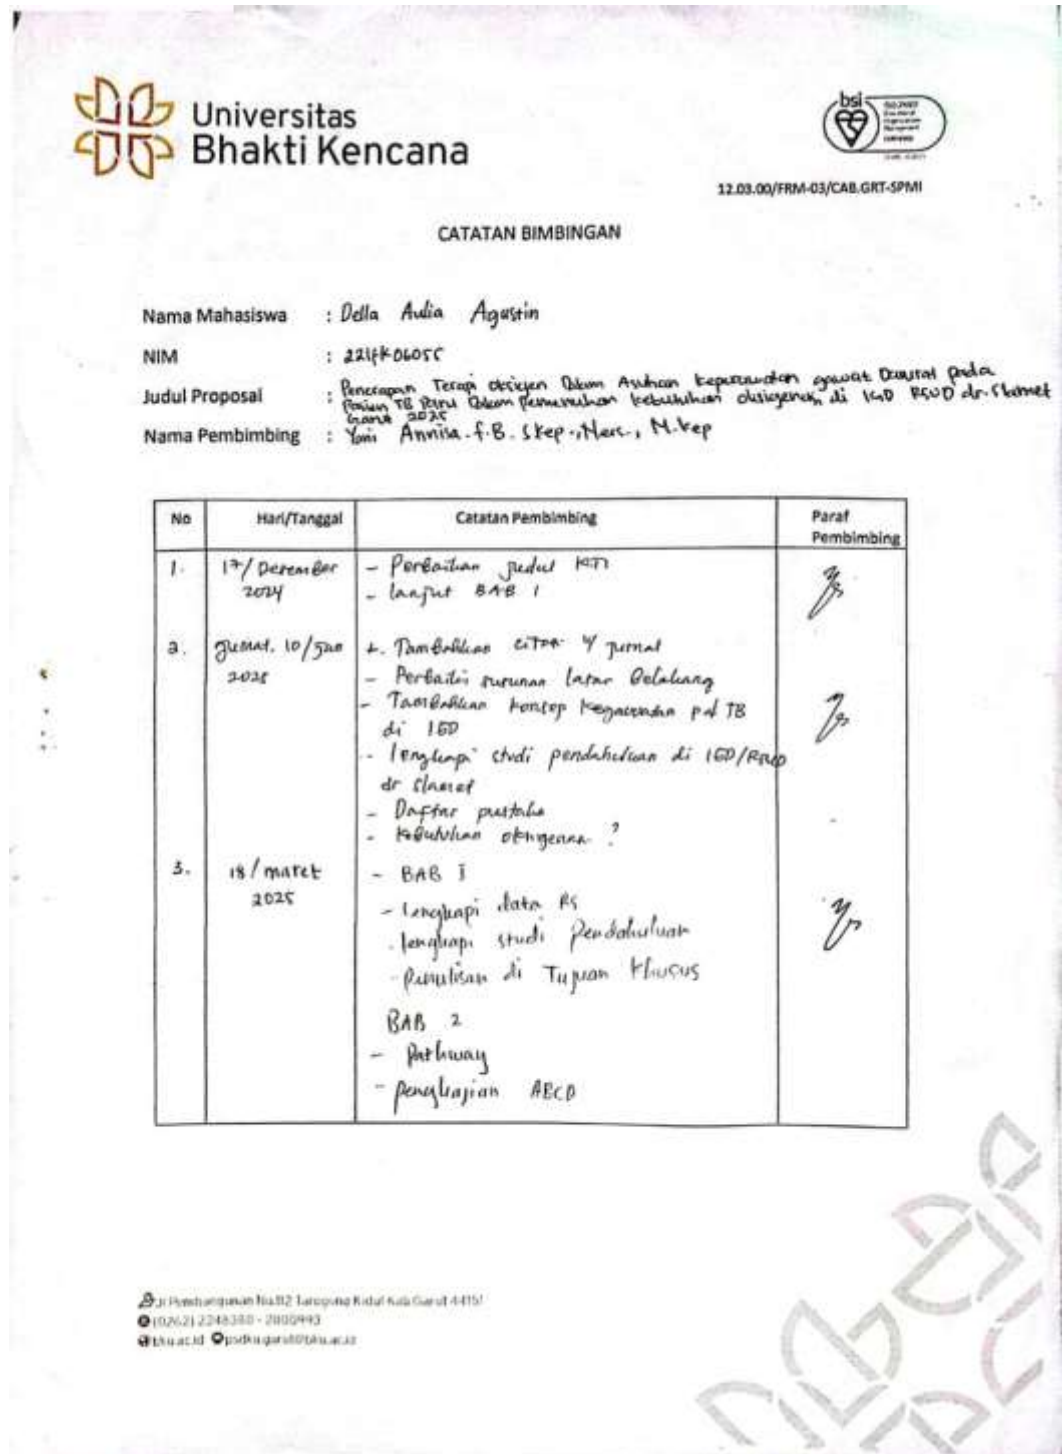 Universitas
Bhakti Kencana
bsi
12.03.00/FRM-03/CAB.GRT-SPMI
CATATAN BIMBINGAN
Nama Mahasiswa : Della Aulia Agustin
NIM :
Judul Proposal : Penerapan Terapi Oksigen Dalam Asuhan keperawatan gawat Darurat pada
Pasien TB Paru Dalam Pemenuhan kebutuhan oksigenasi di IGD RSUD dr. Slamet
Garut 2025
Nama Pembimbing : Annisa. f. B. S.kep., Ners., M.kep
No Hari/Tanggal Catatan Pembimbing Paraf
Pembimbing
1. 17/Desember - Perbaikan judul KTI
2024 - lanjut BAB 1
2. Jumat. 10/Jan Tambahkan jurnal
2025 - Perbaiki susunan latar Belakang
- Tambahkan konsep kegawatan pd TB
di IGD
- lengkapi studi pendahuluan di IGD/RSUD
dr Slamet
- Daftar pustaka
- kebutuhan oksigenasi ?
3. 18/maret - BAB I
2025 - lengkapi data RS
- lengkapi studi Pendahuluan
- penulisan di Tujuan Khusus
BAB 2
- Pathway
- pengkajian ABCD
Jl Pembangunan No.112 Tarogong Kidul Kab Garut 44151
(0262) 2248380 - 2800993
bku.ac.id psdku.garut@bku.ac.id